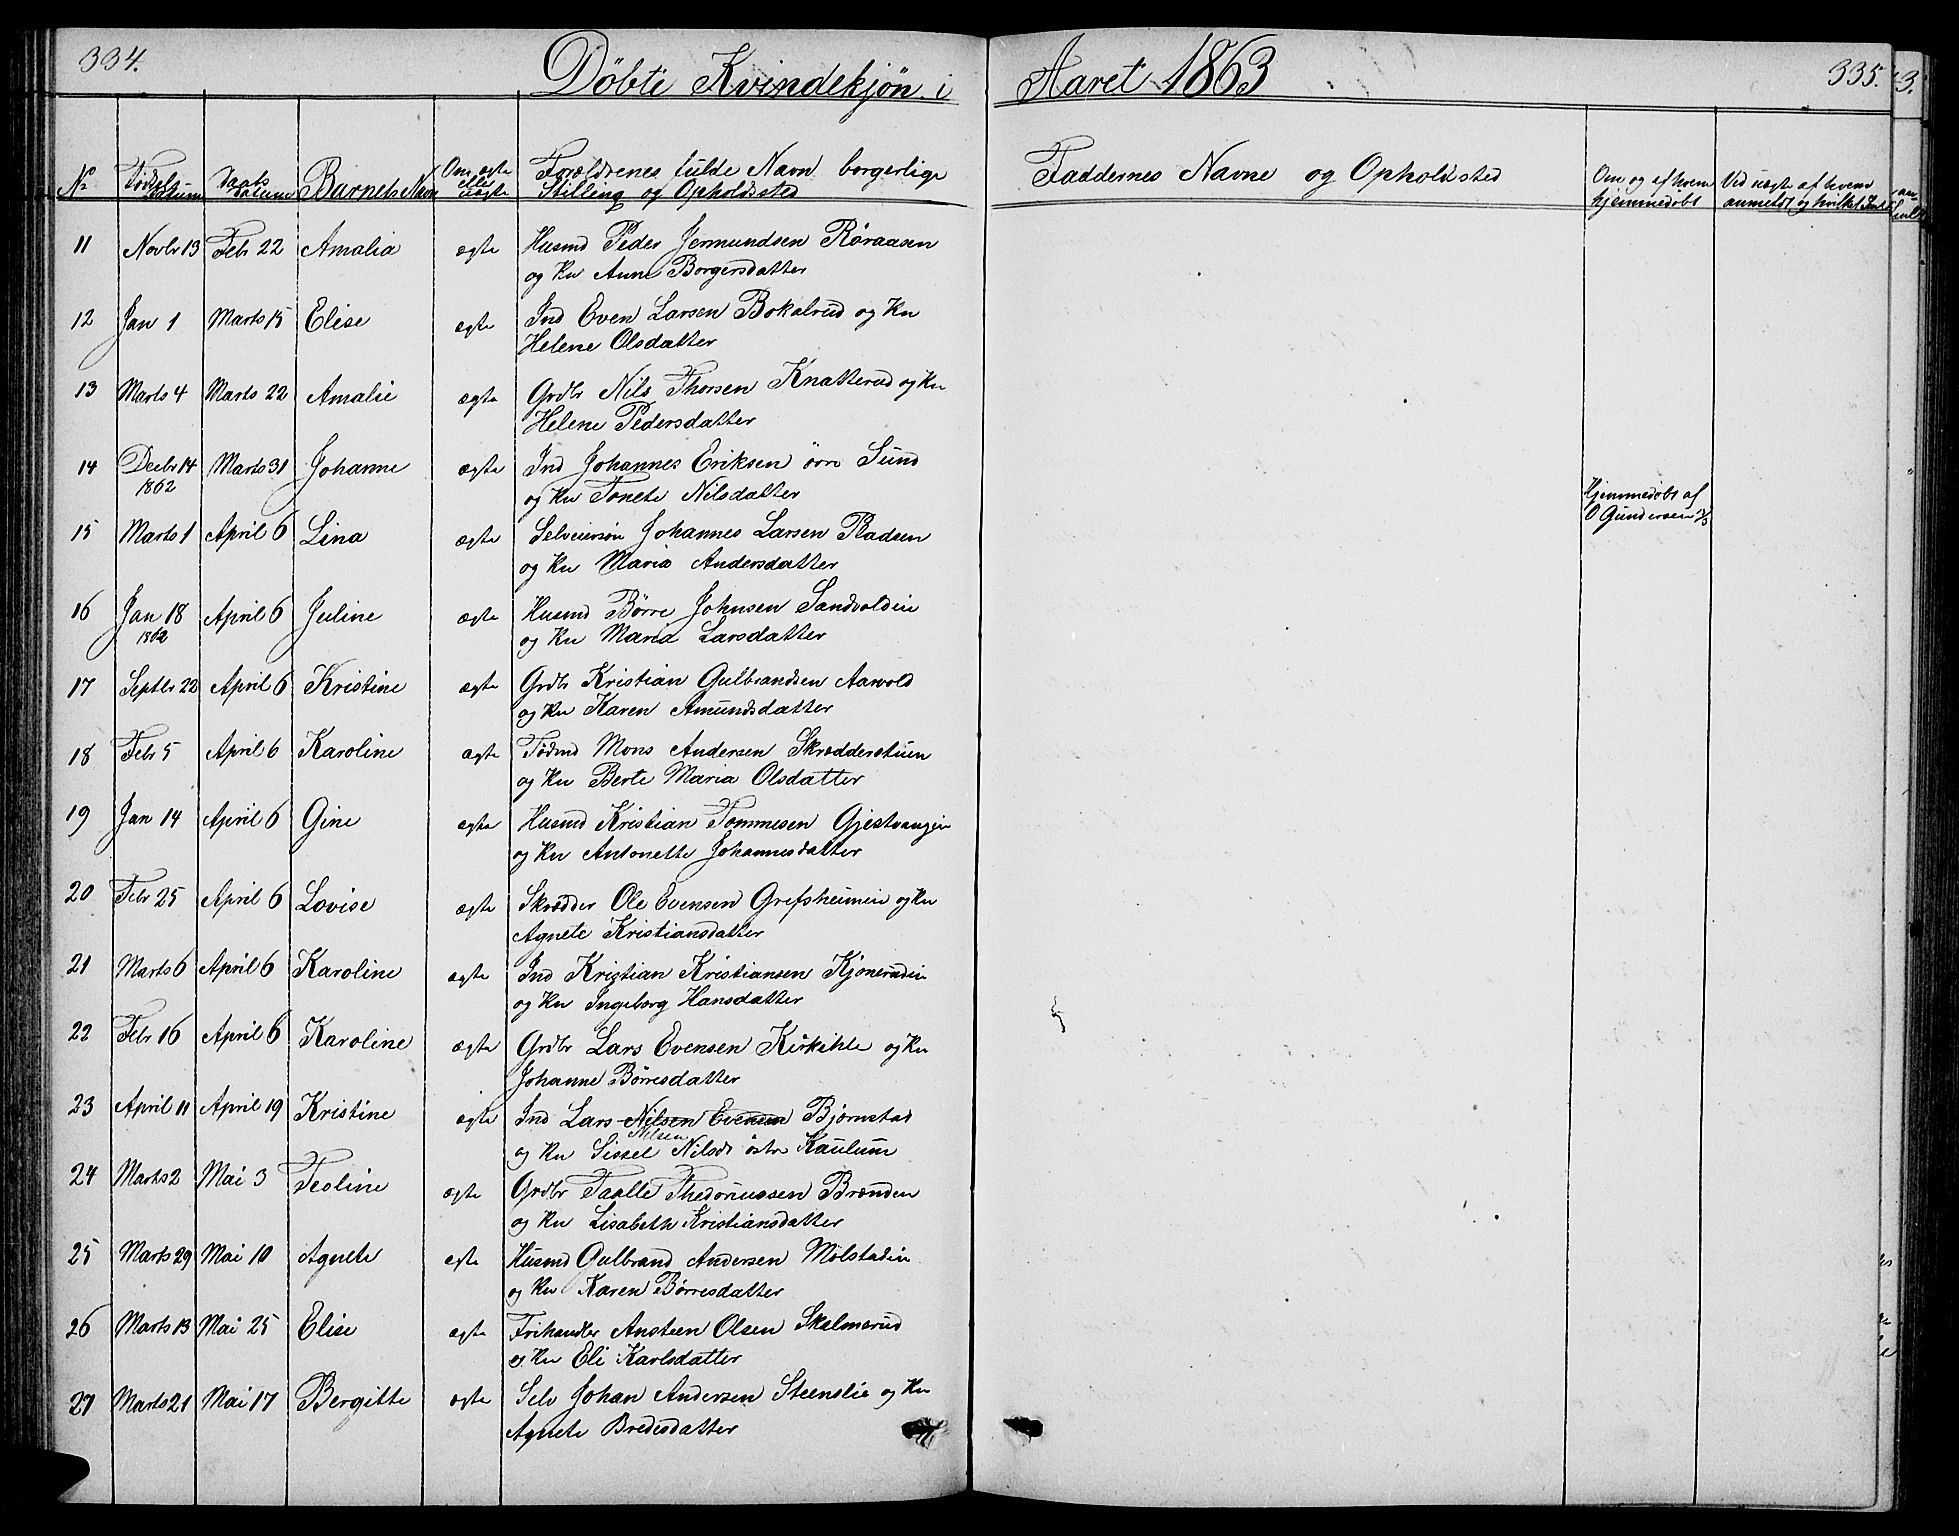 334.
Döbte Kvindekjön i
Aaret 1863
335.
No
Födsels Datum
Daabs Datum
Barnets Navn
Om ægte eller uægte
Forældrenes fulde Navn borgerlige
Stilling og Opholdssted
Faddernes Navne og Opholdsted
Om og af hvem
hjemmedøbt
Ved uægte af hvem
anmeldt og hvilket
11 Novbr 13 Febr 22 Amalia ægte Husmd Peder Jermundsen Røraasen
og Ku Anne Borgersdatter
12 Jan 1 Marts 15 Elise ægte Ind Even Larsen Bokalrud og Ku
Helene Olsdatter
13 Marts 4 Marts 22 Amalie ægte Grdbr Nils Thorsen Knatterud og Ku
Helene Pedersdatter
14 Decbr 14 Marts 31 Johanne ægte Ind Johannes Eriksen övre Sund
1862
og Ku Tonete Nilsdatter
Hjemmedøbt af
O Gundersen
15 Marts 1 April 6 Lina ægte Selveiersön Johannes Larsen
og Ku Maria Andersdatter
16 Jan 18 April 6 Juline ægte Husmd Börre Johnsen Sandvolden
1862
og Ku Maria Larsdatter
17 Septbr 22 April 6 Kristine ægte Grdbr Kristian Gulbrandsen Aarvold
og Ku Karen Amundsdatter
18 Febr 5 April 6 Karoline ægte Mons Andersen Skrædderstuen
og Ku Berte Maria Olsdatter
19 Jan 14 April 6 Gine ægte Husmd Kristian Tommesen Gjestvangen
og Ku Antonette Johannesdatter
20 Febr 25 April 6 Lovise ægte Skrædder Ole Evensen Grefsheimeie og Ku
Agnete Kristiansdatter
21 Marts 6 April 6 Karoline ægte Ind Kristian Kristiansen
og Ku Ingeborg Hansdatter
22 Febr 16 April 6 Karoline ægte Grdbr Lars Evensen Kirkihle og Ku
Johanne Börresdatter
23 April 11 April 19 Kristine ægte Ind Lars Nilsen Evensen Bjørnstad
Nilsen
og Ku Sissel Nilsdr östre Kaulum
24 Marts 2 Mai 3 Teoline ægte Grdbr Taalle Thedoriussen Brænden
og Ku Lisabeth Kristiansdatter
25 Marts 29 Mai 10 Agnete egte Husmd Gulbrand Andersen Mölstadeie
og Ku Karen Börresdatter
26 Marts 13 Mai 25 Elise ægte Frihandler Ansteen Olsen Skelmerud
og Ku Eli Karlsdatter
27 Marts 21 Mai 17 Bergitte ægte Selv Johan Andersen Steenslie og Ku
Agnete Bredesdatter